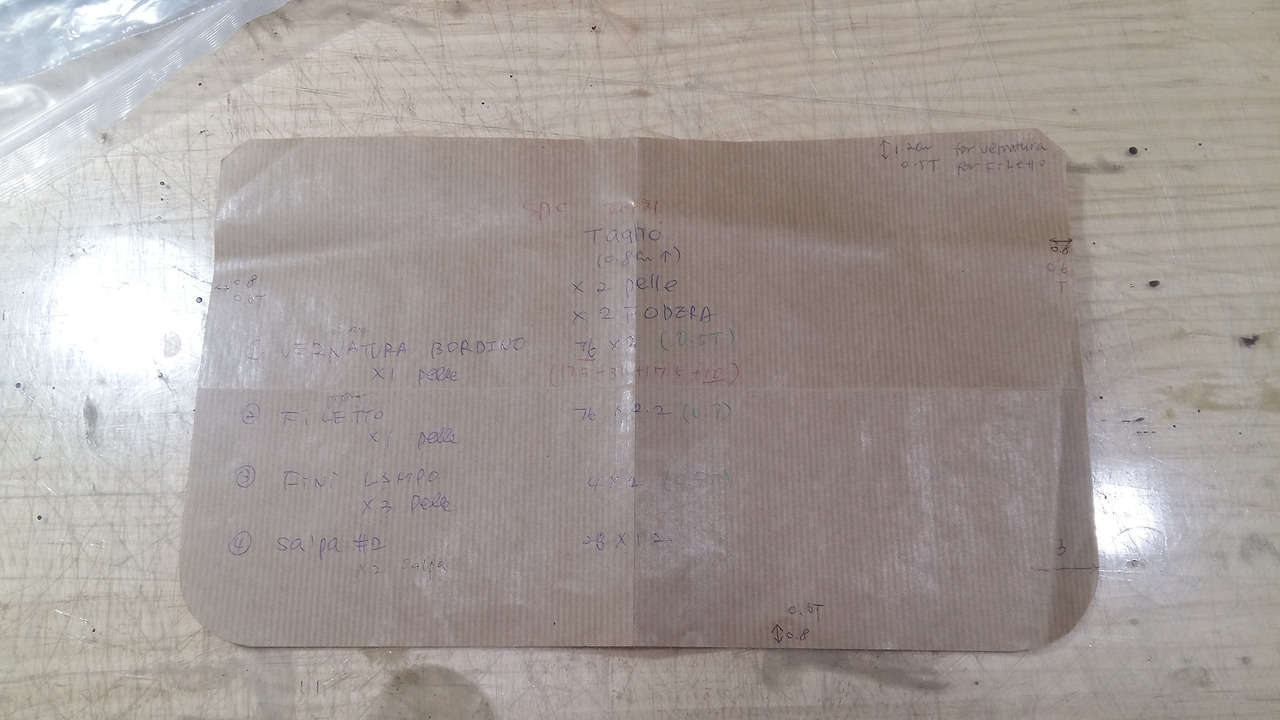 ↕ 1.2cm for vernatura
0.5T for Filetto
TagliO
(0.8cm ↑)
× 2 pelle
× 2 FODERA
↔ 0.8
0.6
T
0.8
0.6T
VERNATURA BORDINO 76 × 2 (0.5T)
×1 pelle (17.5+31+17.5+10)
② FiLETTO 76 × 2.2
×1 pelle
③ FiNi LAMPO 4 × 2 (0.5T)
×3 pelle
④ Salpa #2 28 × 1.2
×2 Salpa
3
0.6T
↕ 0.8